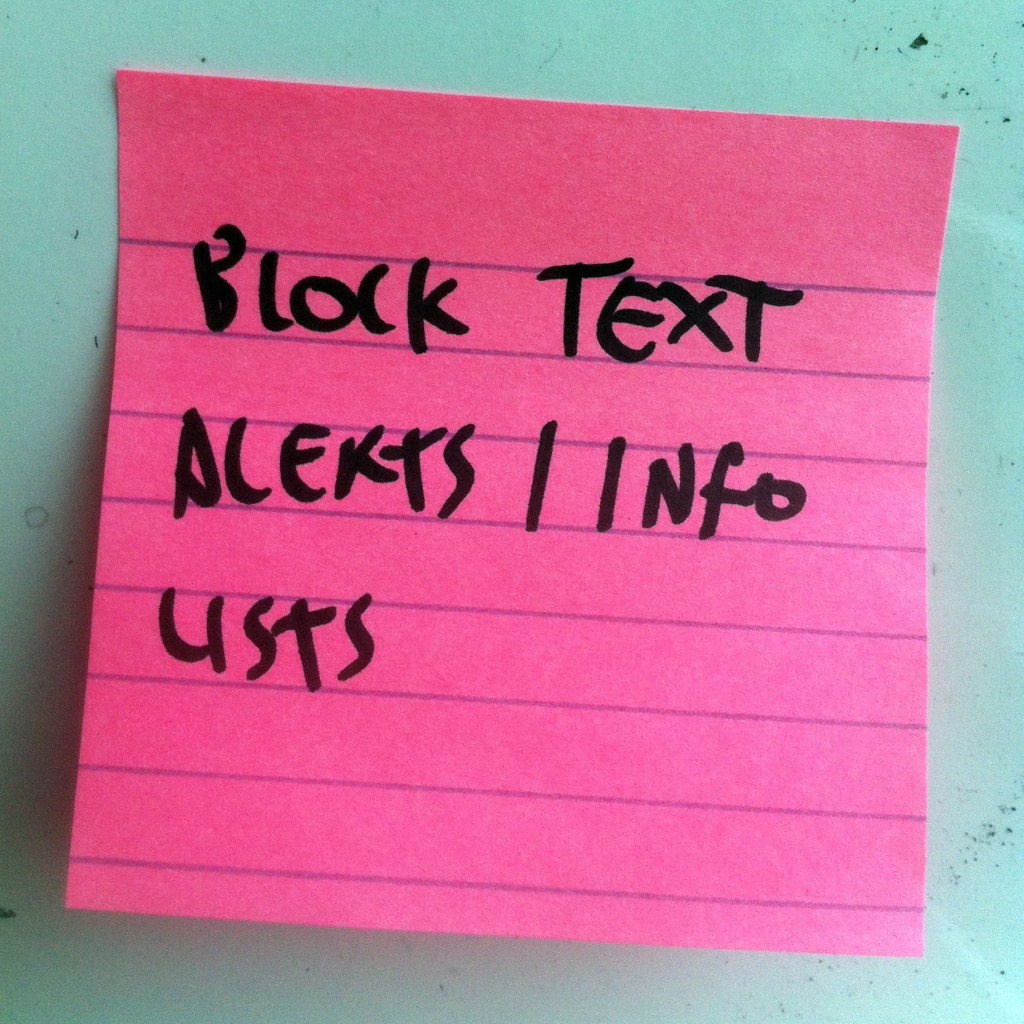 BLOCK TEXT
ALERTS / INFO
LISTS